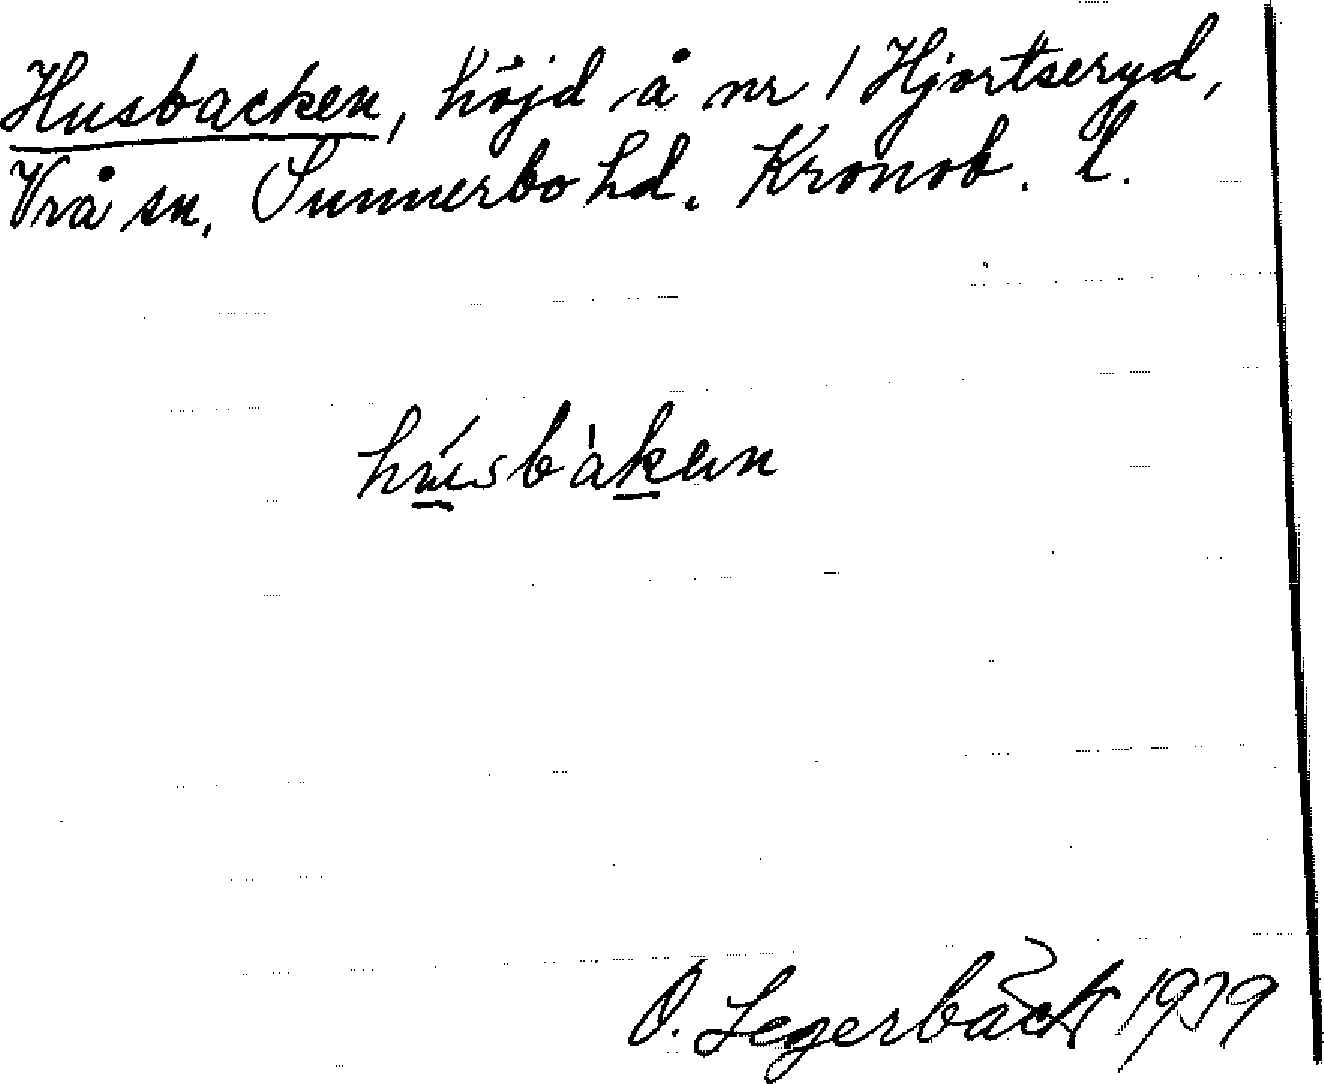 Husbacken, höjd å nr 1 Hjortseryd,
Vrå sn, Sunnerbo hd. Kronob. l.
húsbàken
O. Legerbäck 1939